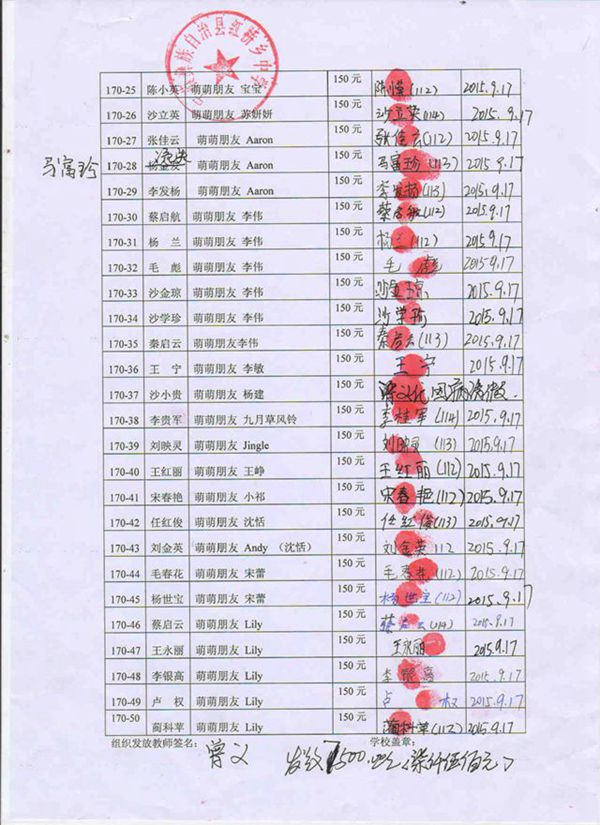 彝族自治县红桥乡中学
170-25 陈小英 萌萌朋友 宝宝 150 元 (112) 2015.9.17
170-26 沙立英 萌萌朋友 苏妍妍 150 元 沙立英(114) 2015.9.17
170-27 张佳云 萌萌朋友 Aaron 150 元 张佳云(112) 2015.9.17
马富珍 170-28 萌萌朋友 Aaron 150 元 马富珍(113) 2015.9.17
170-29 李发杨 萌萌朋友 Aaron 150 元 李发杨(113) 2015.9.17
170-30 蔡启航 萌萌朋友 李伟 150 元 (112) 2015.9.17
170-31 杨 兰 萌萌朋友 李伟 150 元 杨兰(112) 2015.9.17
170-32 毛 彪 萌萌朋友 李伟 150 元 毛 彪 2015.9.17
170-33 沙金琼 萌萌朋友 李伟 150 元 沙金琼 2015.9.17
170-34 沙学珍 萌萌朋友 李伟 150 元 沙学珍 2015.9.17
170-35 秦启云 萌萌朋友李伟 150 元 秦启云(113) 2015.9.17
170-36 王 宁 萌萌朋友 李敏 150 元 王宁 2015.9.17
170-37 沙小贵 萌萌朋友 杨建 150 元 因病
170-38 李贵军 萌萌朋友 九月草风铃 150 元 李桂军(114) 2015.9.17
170-39 刘映灵 萌萌朋友 Jingle 150 元 (113) 2015.9.17
170-40 王红丽 萌萌朋友 王峥 150 元 王红丽(112) 2015.9.17
170-41 宋春艳 萌萌朋友 小祁 150 元 宋春艳(112) 2015.9.17
170-42 任红俊 萌萌朋友 沈恬 150 元 任红俊(113) 2015.9.17
170-43 刘金英 萌萌朋友 Andy （沈恬） 150 元 刘金英 112 2015.9.17
170-44 毛春花 萌萌朋友 宋蕾 150 元 毛春花(112) 2015.9.17
170-45 杨世宝 萌萌朋友 宋蕾 150 元 杨世宝(112) 2015.9.17
170-46 蔡启云 萌萌朋友 Lily 150 元 蔡启云(114) 2015.9.17
170-47 王永丽 萌萌朋友 Lily 150 元 王永丽 2015.9.17
170-48 李银高 萌萌朋友 Lily 150 元 李银高 2015.9.17
170-49 卢 权 萌萌朋友 Lily 150 元 卢 权 2015.9.17
170-50 蔺科苹 萌萌朋友 Lily 150 元 (112) 2015.9.17
组织发放教师签名： 曾义 学校盖章：
7500 (柒仟伍佰元)